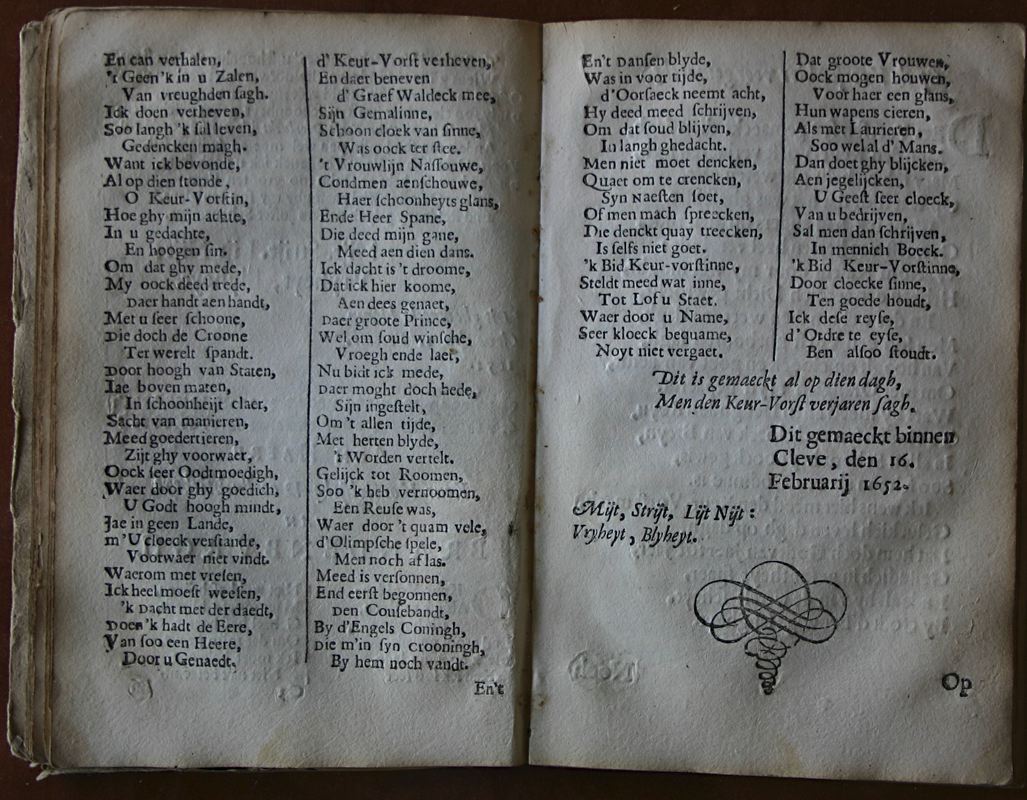 En can verhalen,
't Geen 'k in u Zalen,
Van vreughden sagh.
Ick doen verheven,
Soo langh 'k sal leven,
Gedencken magh.
Want ick bevonde,
Al op dien stonde,
O Keur-Vorstin,
Hoe ghy mijn achte,
In u gedachte,
En hoogen sin.
Om dat ghy mede,
My oock deed trede,
Daer handt aen handt,
Met u seer schoone,
Die doch de Croone
Ter werelt spandt.
Door hoogh van Staten,
Jae boven maten,
In schoonheijt claer,
Sacht van manieren,
Meed goedertieren,
Zijt ghy voorwaer,
Oock seer Oodtmoedigh,
Waer door ghy goedich,
U Godt hoogh mindt,
Jae in geen Lande,
m'U cloeck verstande,
Voorwaer niet vindt.
Waerom met vresen,
Ick heel moest weesen,
'k Dacht met der daedt,
Doen 'k hadt de Eere,
Van soo een Heere,
Door u Genaedt.
d' Keur-Vorst verheven,
En daer beneven
d' Graef Waldeck mee,
Sijn Gemalinne,
Schoon cloek van sinne,
Was oock ter stee.
't Vrouwlijn Nassouwe,
Condmen aenschouwe,
Haer schoonheyts glans,
Ende Heer Spane,
Die deed mijn gane,
Meed aen dien dans.
Ick dacht is 't droome,
Dat ick hier koome,
Aen dees genaet,
Daer groote Prince,
Wel om soud winsche,
Vroegh ende laet,
Nu bidt ick mede,
Daer moght doch hede,
Sijn ingestelt,
Om 't allen tijde,
Met herten blyde,
't Worden vertelt.
Gelijck tot Roomen,
Soo 'k heb vernoomen,
Een Reuse was,
Waer door 't quam vele,
d'Olimpsche spele,
Men noch af las.
Meed is versonnen,
End eerst begonnen,
Den Cousebandt,
By d'Engels Coningh,
Die m'in syn crooningh,
By hem noch vandt.
En't
En't Dansen blyde,
Was in voor tijde,
d'Oorsaeck neemt acht,
Hy deed meed schrijven,
Om dat soud blijven,
In langh ghedacht.
Men niet moet dencken,
Quaet om te crencken,
Syn Naesten soet,
Of men mach spreecken,
Die denckt quay treecken,
Is selfs niet goet.
'k Bid Keur-vorstinne,
Steldt meed wat inne,
Tot Lof u Staet.
Waer door u Name,
Seer kloeck bequame,
Noyt niet vergaet.
Dat groote Vrouwen,
Oock mogen houwen,
Voor haer een glans,
Hun wapens cieren,
Als met Laurieren,
Soo wel al d' Mans.
Dan doet ghy blijcken,
Aen jegelijcken,
U Geest seer cloeck,
Van u bedrijven,
Sal men dan schrijven,
In mennich Boeck.
'k Bid Keur-Vorstinne,
Door cloecke sinne,
Ten goede houdt,
Ick dese reyse,
d' Ordre te eyse,
Ben alsoo stoudt.
Dit is gemaeckt al op dien dagh,
Men den Keur-Vorst verjaren sagh.
Dit gemaeckt binnen
Cleve, den 16.
Februarij 1652.
Mijt, Strijt, Lijt Nijt:
Vryheyt, Blyheyt.
Op